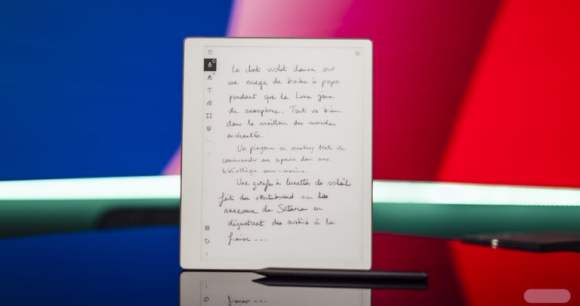 Le chat violet danse sur
un nuage de barbe à papa
pendant que la Lune joue
du saxophone. Tout va bien
dans le meilleur des mondes
enchantés.
Un pingouin en smoking tente de
commander un dans une
bibliothèque sous-marine.
Une girafe à lunettes de soleil
fait du skateboard sur les
anneaux de Saturne en
dégustant des sushis à la
fraise ...